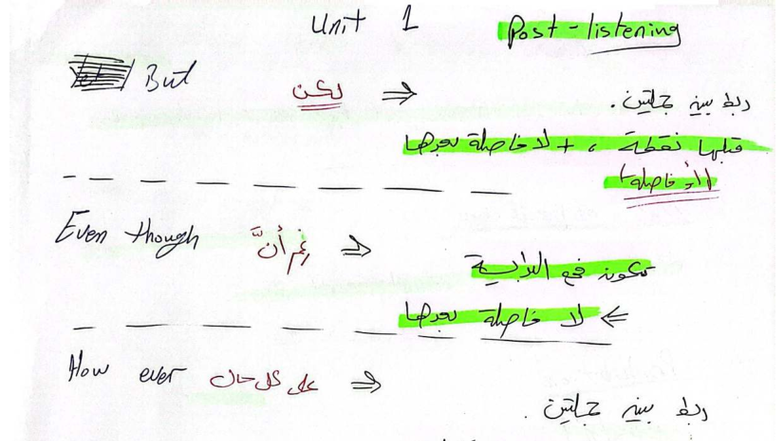 Unit 1 Post-listening
But لكن ⇒ ربط بين جملتين.
قبلها نقطة ، + لا فاصلة بعدها
(أو فاصلة)
Even though رغم أنَّ ⇒
تكون في البداية
لا فاصلة بعدها ⇐
How ever على كل حال ⇒
ربط بين جملتين .